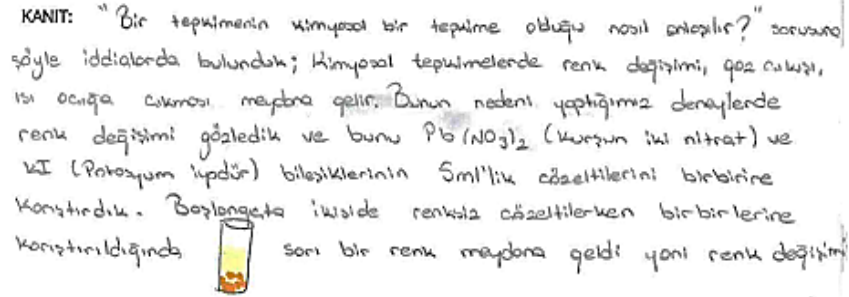 KANIT: "Bir tepkimenin kimyasal bir tepkime olduğu nasıl anlaşılır?" sorusuna
şöyle iddialarda bulunduk; Kimyasal tepkimelerde renk değişimi, gaz çıkışı,
ısı açığa çıkması meydana gelir. Bunun nedeni yaptığımız deneylerde
renk değişimi gözledik ve bunu Pb(NO3)2 (kurşun iki nitrat) ve
KI (Potasyum iyodür) bileşiklerinin 5ml'lik çözeltilerini birbirine
karıştırdık. Başlangıçta ikiside renksiz çözeltilerken birbirlerine
karıştırıldığında sarı bir renk meydana geldi yani renk değişimi